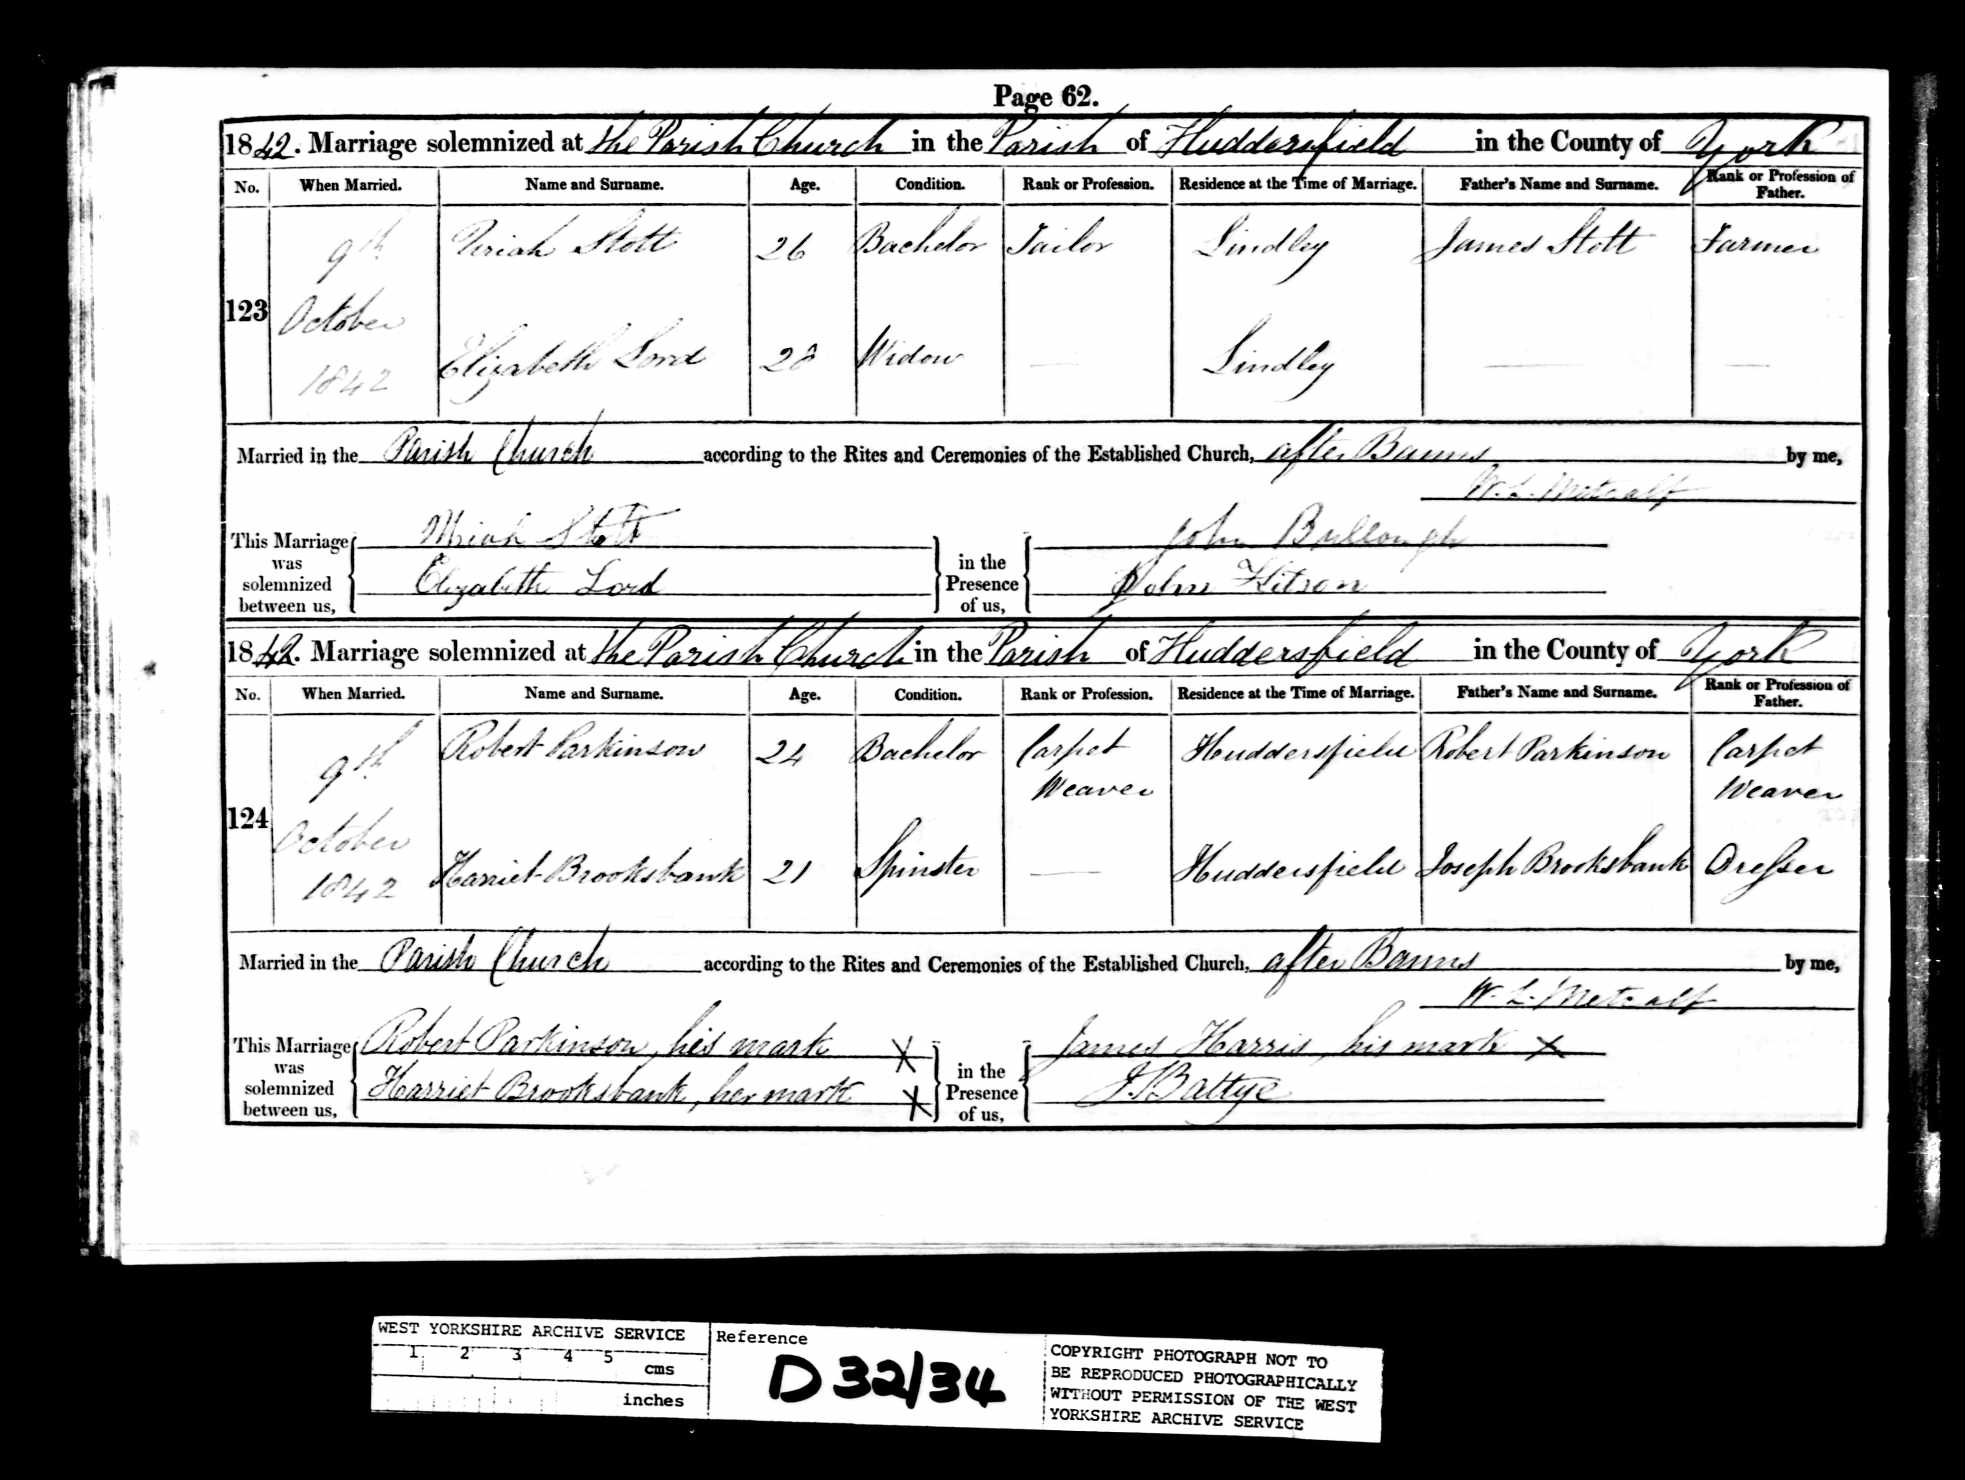 Page 62.
1842. Marriage solemnized at the Parish Church in the Parish of Huddersfield in the County of York
No. When Married. Name and Surname. Age. Condition. Rank or Profession. Residence at the Time of Marriage. Father's Name and Surname. Rank or Profession of Father.
9th Uriah Stott 26 Bachelor Tailor Lindley James Stott Farmer
123 October
1842 Elizabeth Lord 28 Widow — Lindley — —
Married in the Parish Church according to the Rites and Ceremonies of the Established Church, after Banns by me,
W. L. Metcalf
This Marriage was solemnized between us, Uriah Stott in the Presence of us, John Bullough
Elizabeth Lord John Kitson
1842. Marriage solemnized at the Parish Church in the Parish of Huddersfield in the County of York
No. When Married. Name and Surname. Age. Condition. Rank or Profession. Residence at the Time of Marriage. Father's Name and Surname. Rank or Profession of Father.
9th Robert Parkinson 24 Bachelor Carpet Weaver Huddersfield Robert Parkinson Carpet Weaver
124 October
1842 Harriet Brooksbank 21 Spinster — Huddersfield Joseph Brooksbank Dresser
Married in the Parish Church according to the Rites and Ceremonies of the Established Church, after Banns by me,
W. L. Metcalf
This Marriage was solemnized between us, Robert Parkinson, his mark X in the Presence of us, James Harris, his mark X
Harriet Brooksbank, her mark X J. Battye
WEST YORKSHIRE ARCHIVE SERVICE
1 2 3 4 5 cms
inches
Reference
D32/34
COPYRIGHT PHOTOGRAPH NOT TO
BE REPRODUCED PHOTOGRAPHICALLY
WITHOUT PERMISSION OF THE WEST
YORKSHIRE ARCHIVE SERVICE